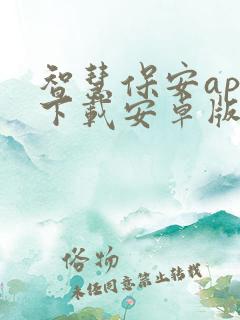 智慧保安ap
下載安卓版
俗物
未经同意禁止转载